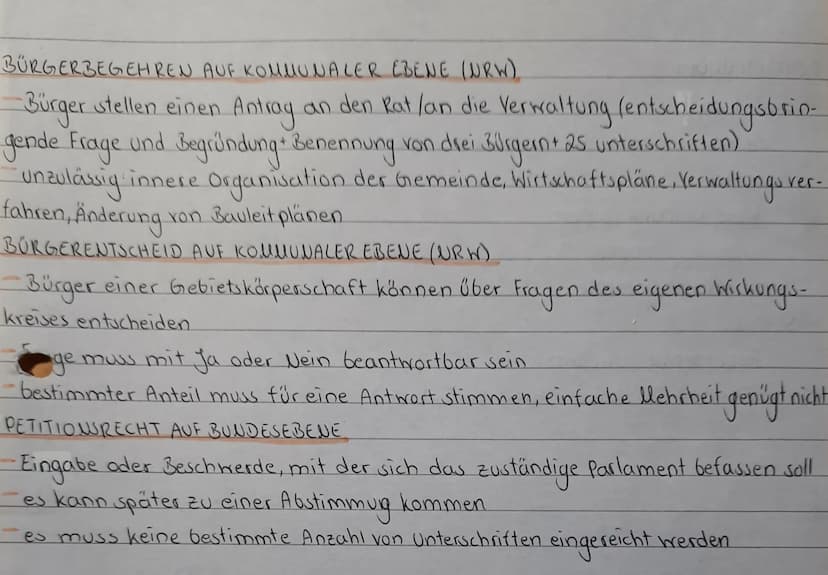 BÜRGERBEGEHREN AUF KOMMUNALER EBENE (NRW)
- Bürger stellen einen Antrag an den Rat/an die Verwaltung (entscheidungsbrin-
gende Frage und Begründung + Benennung von drei Bürgern + 25 unterschriften)
- unzulässig: innere Organisation der Gemeinde, Wirtschaftspläne, Verwaltungsver-
fahren, Änderung von Bauleitplänen
BÜRGERENTSCHEID AUF KOMMUNALER EBENE (NRW)
- Bürger einer Gebietskörperschaft können über Fragen des eigenen Wirkungs-
kreises entscheiden
- muss mit Ja oder Nein beantwortbar sein
- bestimmter Anteil muss für eine Antwort stimmen, einfache Mehrheit genügt nicht
PETITIONSRECHT AUF BUNDESEBENE
- Eingabe oder Beschwerde, mit der sich das zuständige Parlament befassen soll
- es kann später zu einer Abstimmug kommen
- es muss keine bestimmte Anzahl von Unterschriften eingereicht werden